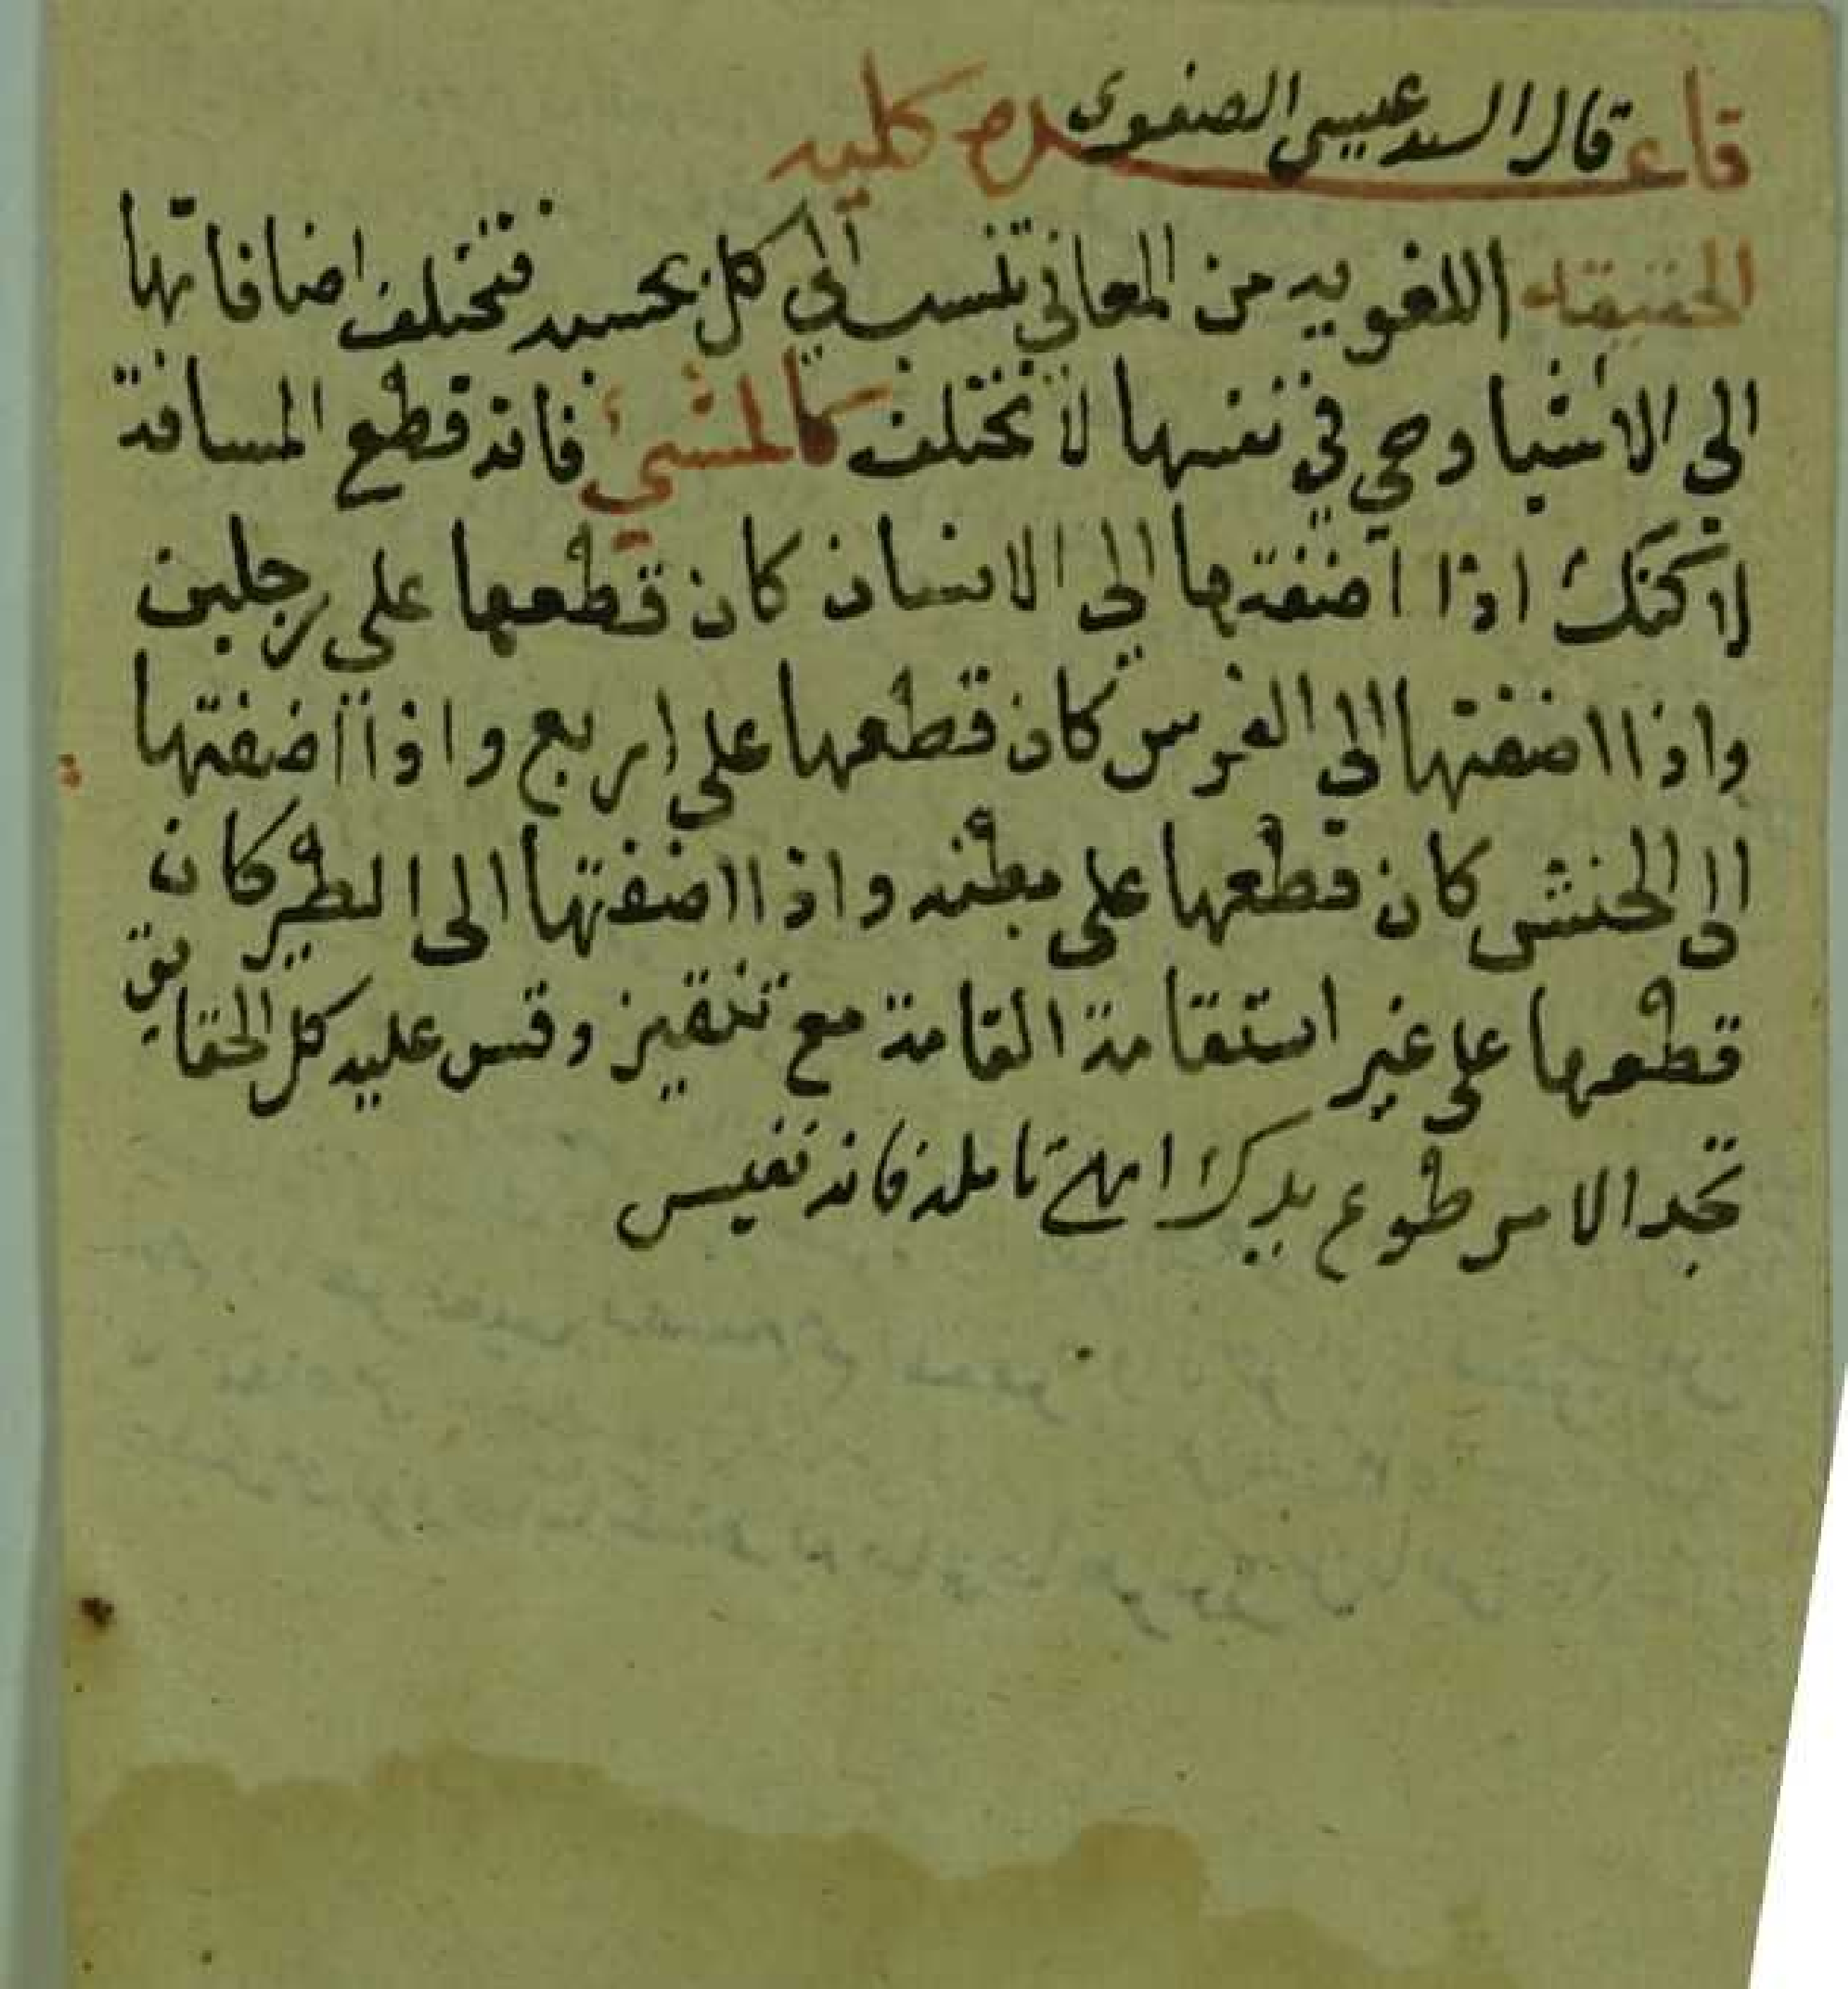 قاعدة كلية قال السيد عيسى الصفوى
الحقيقة اللغويه من المعاني تنسب الى كل بحسبه فتختلف اضافاتها
الى الاشيا وهي في نفسها لا تختلف كالمشي فانه قطع المسافة
لاكنك اذا اضفتها الى الانسان كان قطعها على رجلين
واذا اضفتها الى الفرس كان قطعها على اربع واذا اضفتها
الى الحنش كان قطعها على بطنه واذا اضفتها الى الطير كان
قطعها على غير استقامة القامة مع تنقيز وقس عليه كل الحقايق
تجد الامر طوع يدك اهـ تامله فانه نفيس